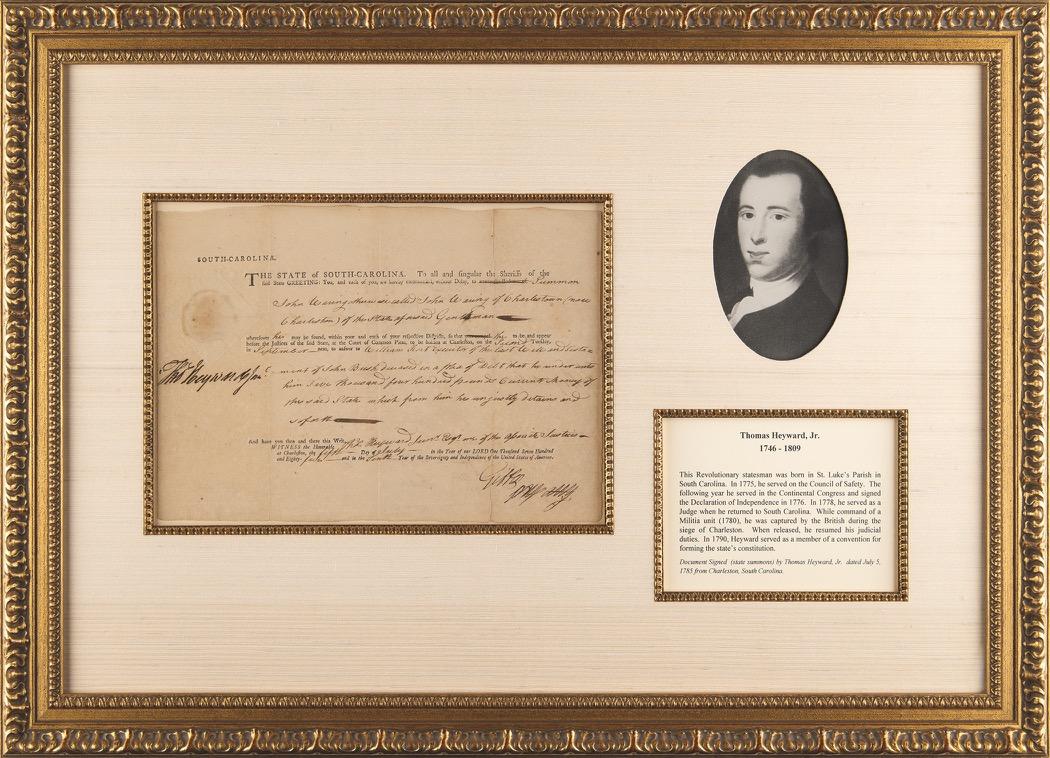 SOUTH-CAROLINA.
THE STATE of SOUTH-CAROLINA. To all and singular the Sheriffs of the
said State GREETING: You, and each of you, are hereby commanded, without Delay, to Summon
John Waring otherwise called John Waring of Charlestown (now
Charleston) of the State aforesaid Gentleman
wheresoever he may be found, within your and each of your respective Districts, so that he be and appear
before the Justices of the said State, at the Court of Common Pleas, to be holden at Charleston, on the
in September next, to answer to William Executor of the last Will and Testa-
ment of John Bush deceased in a plea of Debt that he render unto
him Five thousand four hundred pounds Current Money of
the said State which from him he unjustly detains and
so forth
Thos Heyward Junr
And have you then and there this Writ.
WITNESS the Honorable Heyward Junr Esqr one of the Associate Justices
at Charleston, the fifth Day of July in the Year of our LORD One Thousand Seven Hundred
and Eighty- and in the Year of the Sovereignty and Independence of the United States of America.
Thomas Heyward, Jr.
1746 - 1809
This Revolutionary statesman was born in St. Luke's Parish in
South Carolina. In 1775, he served on the Council of Safety. The
following year he served in the Continental Congress and signed
the Declaration of Independence in 1776. In 1778, he served as a
Judge when he returned to South Carolina. While command of a
Militia unit (1780), he was captured by the British during the
siege of Charleston. When released, he resumed his judicial
duties. In 1790, Heyward served as a member of a convention for
forming the state's constitution.
Document Signed (state summons) by Thomas Heyward, Jr. dated July 5,
1785 from Charleston, South Carolina.